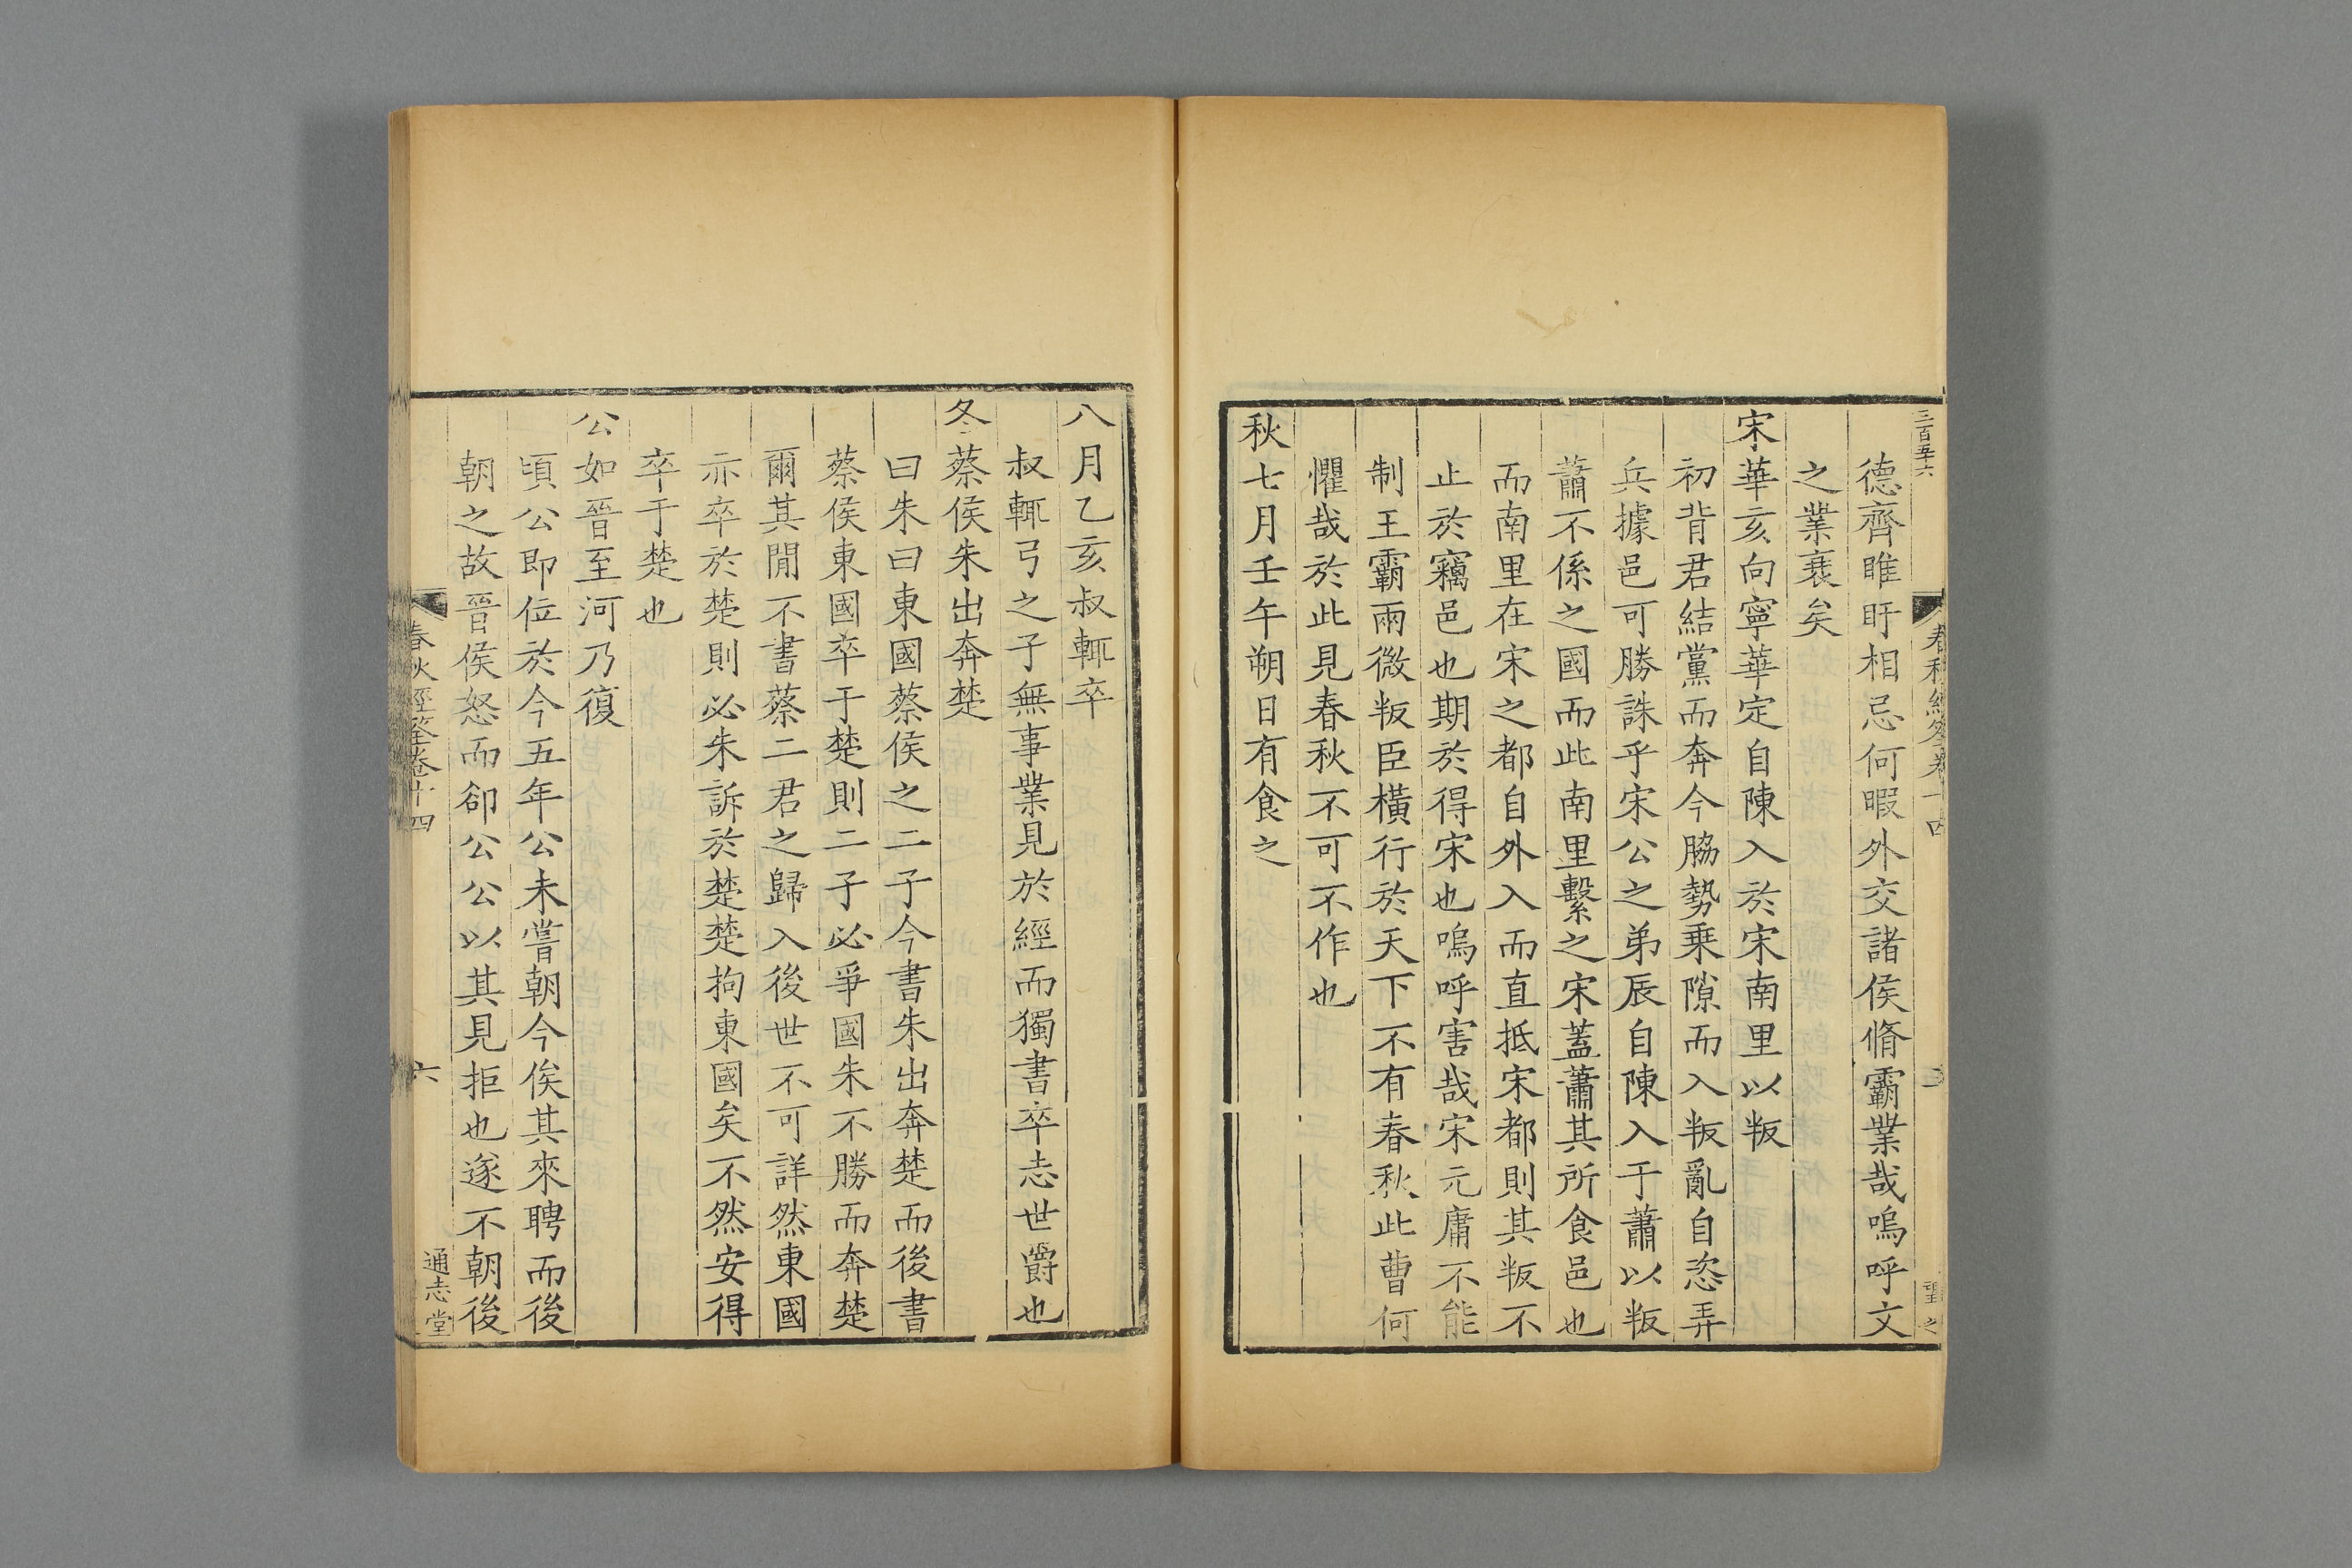 三百五十六
德齊睢盱相忌何暇外交諸侯脩霸業哉嗚呼文
之業衰矣
宋華亥向寧華定自陳入於宋南里以叛
初背君結黨而奔今脇勢乗隙而入叛亂自恣弄
兵據邑可勝誅乎宋公之弟辰自陳入于蕭以叛
蕭不係之國而此南里繫之宋蓋蕭其所食邑也
而南里在宋之都自外入而直抵宋都則其叛不
止於竊邑也期於得宋也嗚呼害哉宋元庸不能
制王霸兩微叛臣橫行於天下不有春秋此曹何
懼哉於此見春秋不可不作也
秋七月壬午朔日有食之
八月乙亥叔輒卒
叔輒弓之子無事業見於經而獨書卒志世爵也
冬蔡侯朱出奔楚
曰朱曰東國蔡侯之二子今書朱出奔楚而後書
蔡侯東國卒于楚則二子必爭國朱不勝而奔楚
爾其閒不書蔡二君之歸入後世不可詳然東國
亦卒於楚則必朱訴於楚楚拘東國矣不然安得
卒于楚也
公如晉至河乃復
頃公即位於今五年公未嘗朝今俟其來聘而後
朝之故晉侯怒而卻公公以其見拒也遂不朝後
春秋經筌卷十四
六
通志堂